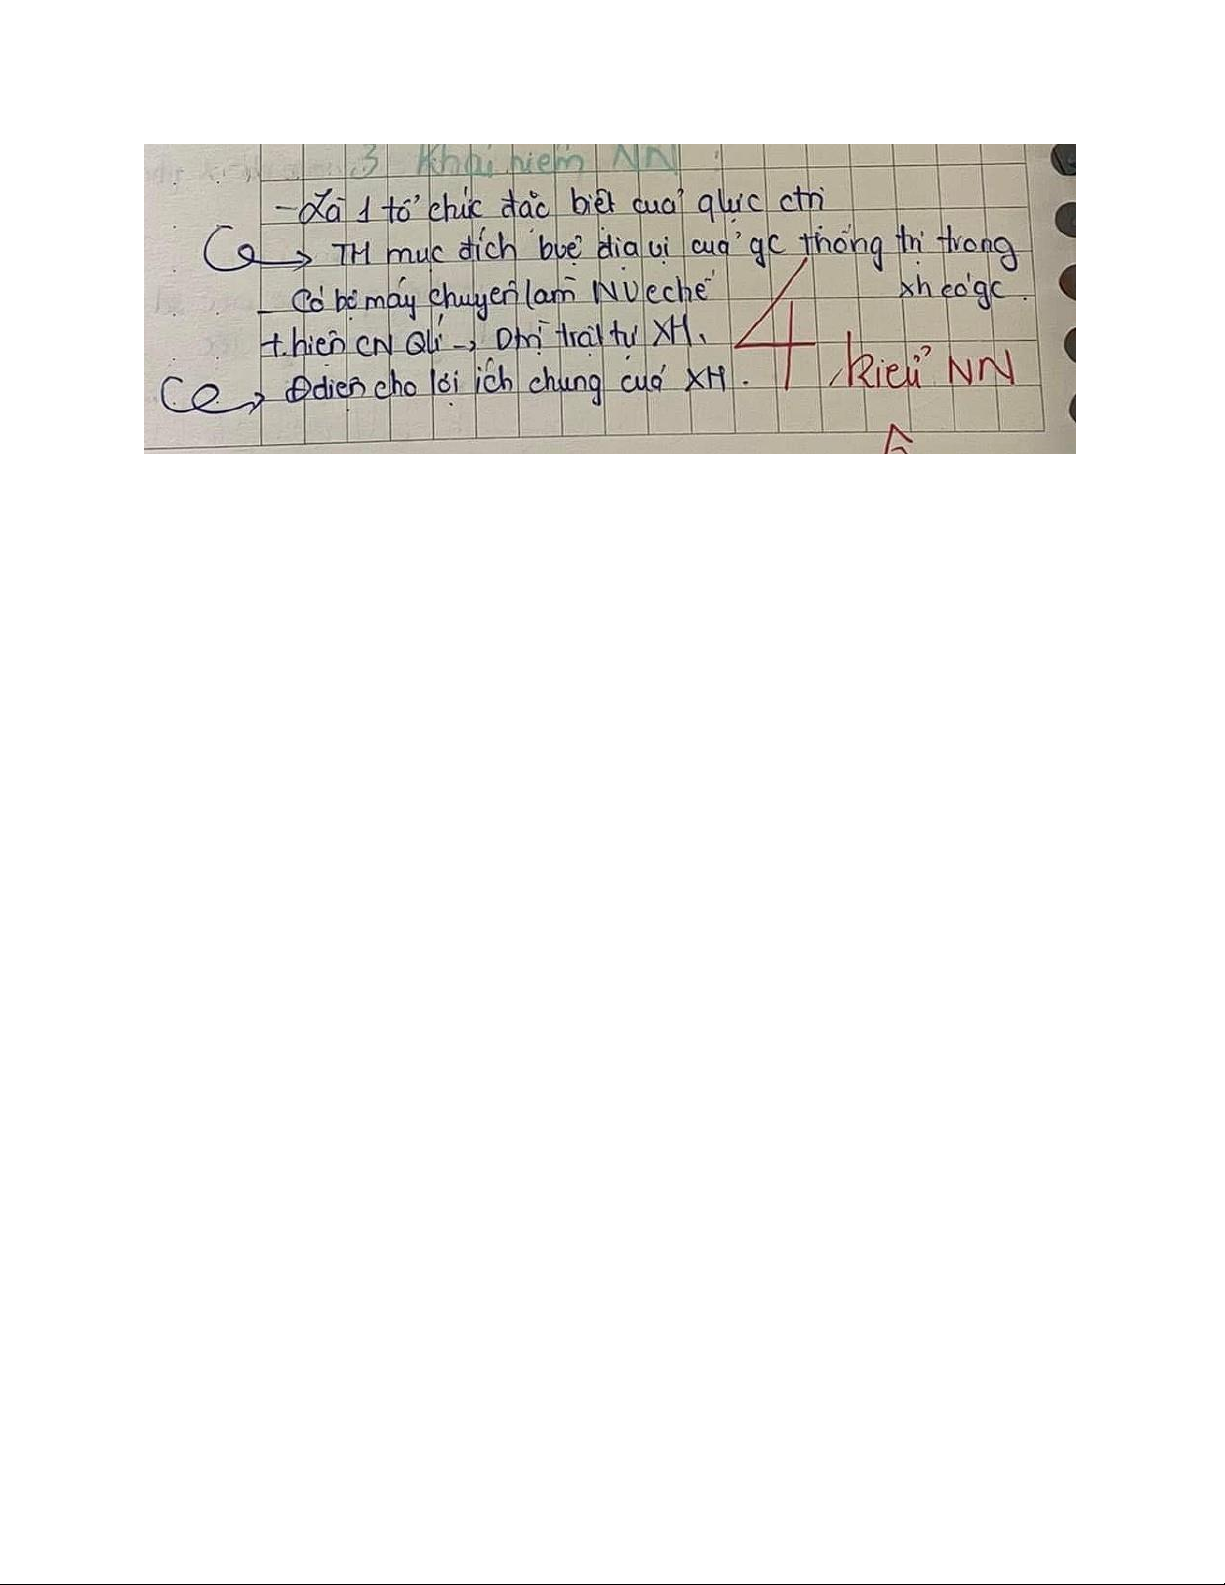 3 Khái niệm NN :
- Là 1 tổ chức đặc biệt của qlực ctrị
→ TH mục đích bvệ địa vị của gc thống trị trong
xh có gc.
- Có bộ máy chuyên làm NV cchế
t.hiện CN Qlí → Dtrì trật tự XH.
→ Đdiện cho lợi ích chung của XH.
4 kiểu NN